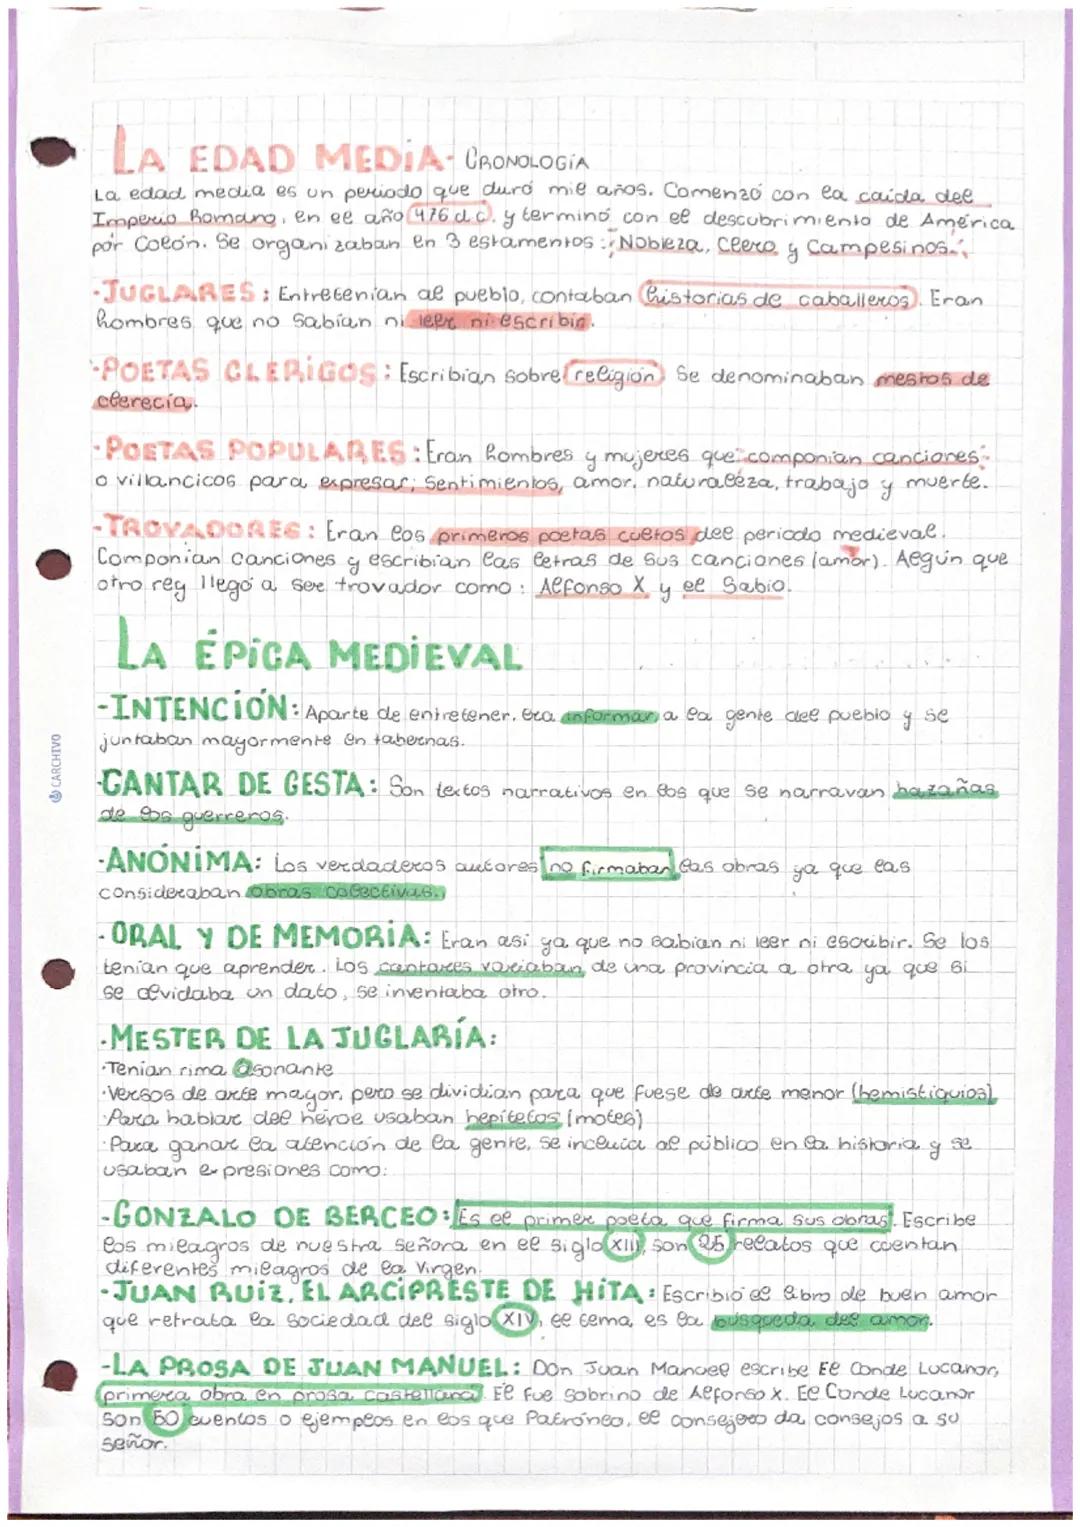 LA EDAD MEDIA- CRONOLOGÍA
La edad media es un periodo que duró mil años. Comenzó con la caida del
Imperio Romano, en el año 476 d.c. y terminó con el descubrimiento de América
por Colón. Se organizaban en 3 estamentos: Nobleza, Clero y Campesinos.
-JUGLARES: Entretenían al pueblo, contaban historias de caballeros. Eran
hombres que no sabían ni leer ni escribir.
-POETAS CLERIGOS: Escribian sobre religión Se denominaban mestros de
clerecía.
-POETAS POPULARES: Eran hombres y mujeres que componian canciones
o villancicos para expresar; sentimientos, amor, naturaleza, trabajo y muerte.
-TROVADORES: Eran los primeros poetas cultos del periodo medieval.
Componian canciones y escribian las letras de sus canciones (amor). Aegún que
otro rey llegó a ser trovador como: Alfonso X y el Sabio.
LA ÉPICA MEDIEVAL
-INTENCIÓN: Aparte de entretener, era informar a la gente del pueblo y se
juntaban mayormente en tabernas.
-CANTAR DE GESTA: Son textos narrativos en los que se narravan hazañas
de los guerreros.
-ANÓNIMA: Los verdaderos autores no firmaban las obras ya que las
consideraban obras colectivas.
-ORAL Y DE MEMORIA: Eran asi ya que no sabian ni leer ni escribir. Se los
tenian que aprender. Los cantares variaban de una provincia a otra ya que si
se olvidaba un dato, se inventaba otro.
-MESTER DE LA JUGLARÍA:
·Tenian rima asonante
·Versos de arte mayor, pero se dividian para que fuese de arte menor (hemistiquios)
·Para hablar del héroe usaban hepitetos (motes)
·Para ganar la atención de la gente, se incluia al público en la historia y se
usaban expresiones como:
-GONZALO DE BERCEO: Es el primer poeta que firma sus obras. Escribe
los milagros de nuestra señora en el siglo XIII, son 25 relatos que cuentan
diferentes milagros de la Virgen.
-JUAN RUIZ, EL ARCIPRESTE DE HITA: Escribió el libro de buen amor
que retrata la sociedad del siglo XIV, el tema es la busqueda del amor.
-LA PROSA DE JUAN MANUEL: Don Juan Manuel escribe El Conde Lucanor,
primera obra en prosa castellana. El fue sobrino de Alfonso X. El Conde Lucanor
son 50 cuentos o ejemplos en los que Patróneo, el consejero da consejos a su
señor.
CARCHIVO